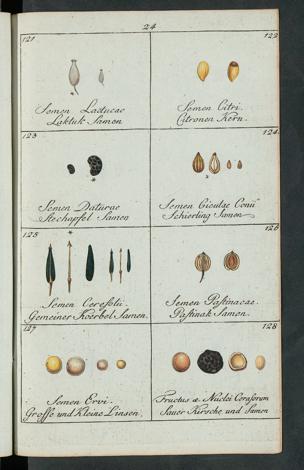 24
121
122
Semen Lactucae
Laktuk Samen
Semen Citri.
Citronen Kern.
123
124
Semen Daturae
Stechapfel Samen
Semen Cicutae Conii
Schierling Samen
125
126
Semen Cerefolii.
Gemeiner Koerbel Samen.
Semen Pastinacae.
Pastinak Samen.
127
128
Semen Ervi.
Grosse und Kleine Linsen.
Fructus et Nuclei Cerasorum
Sauer Kirsche und Samen